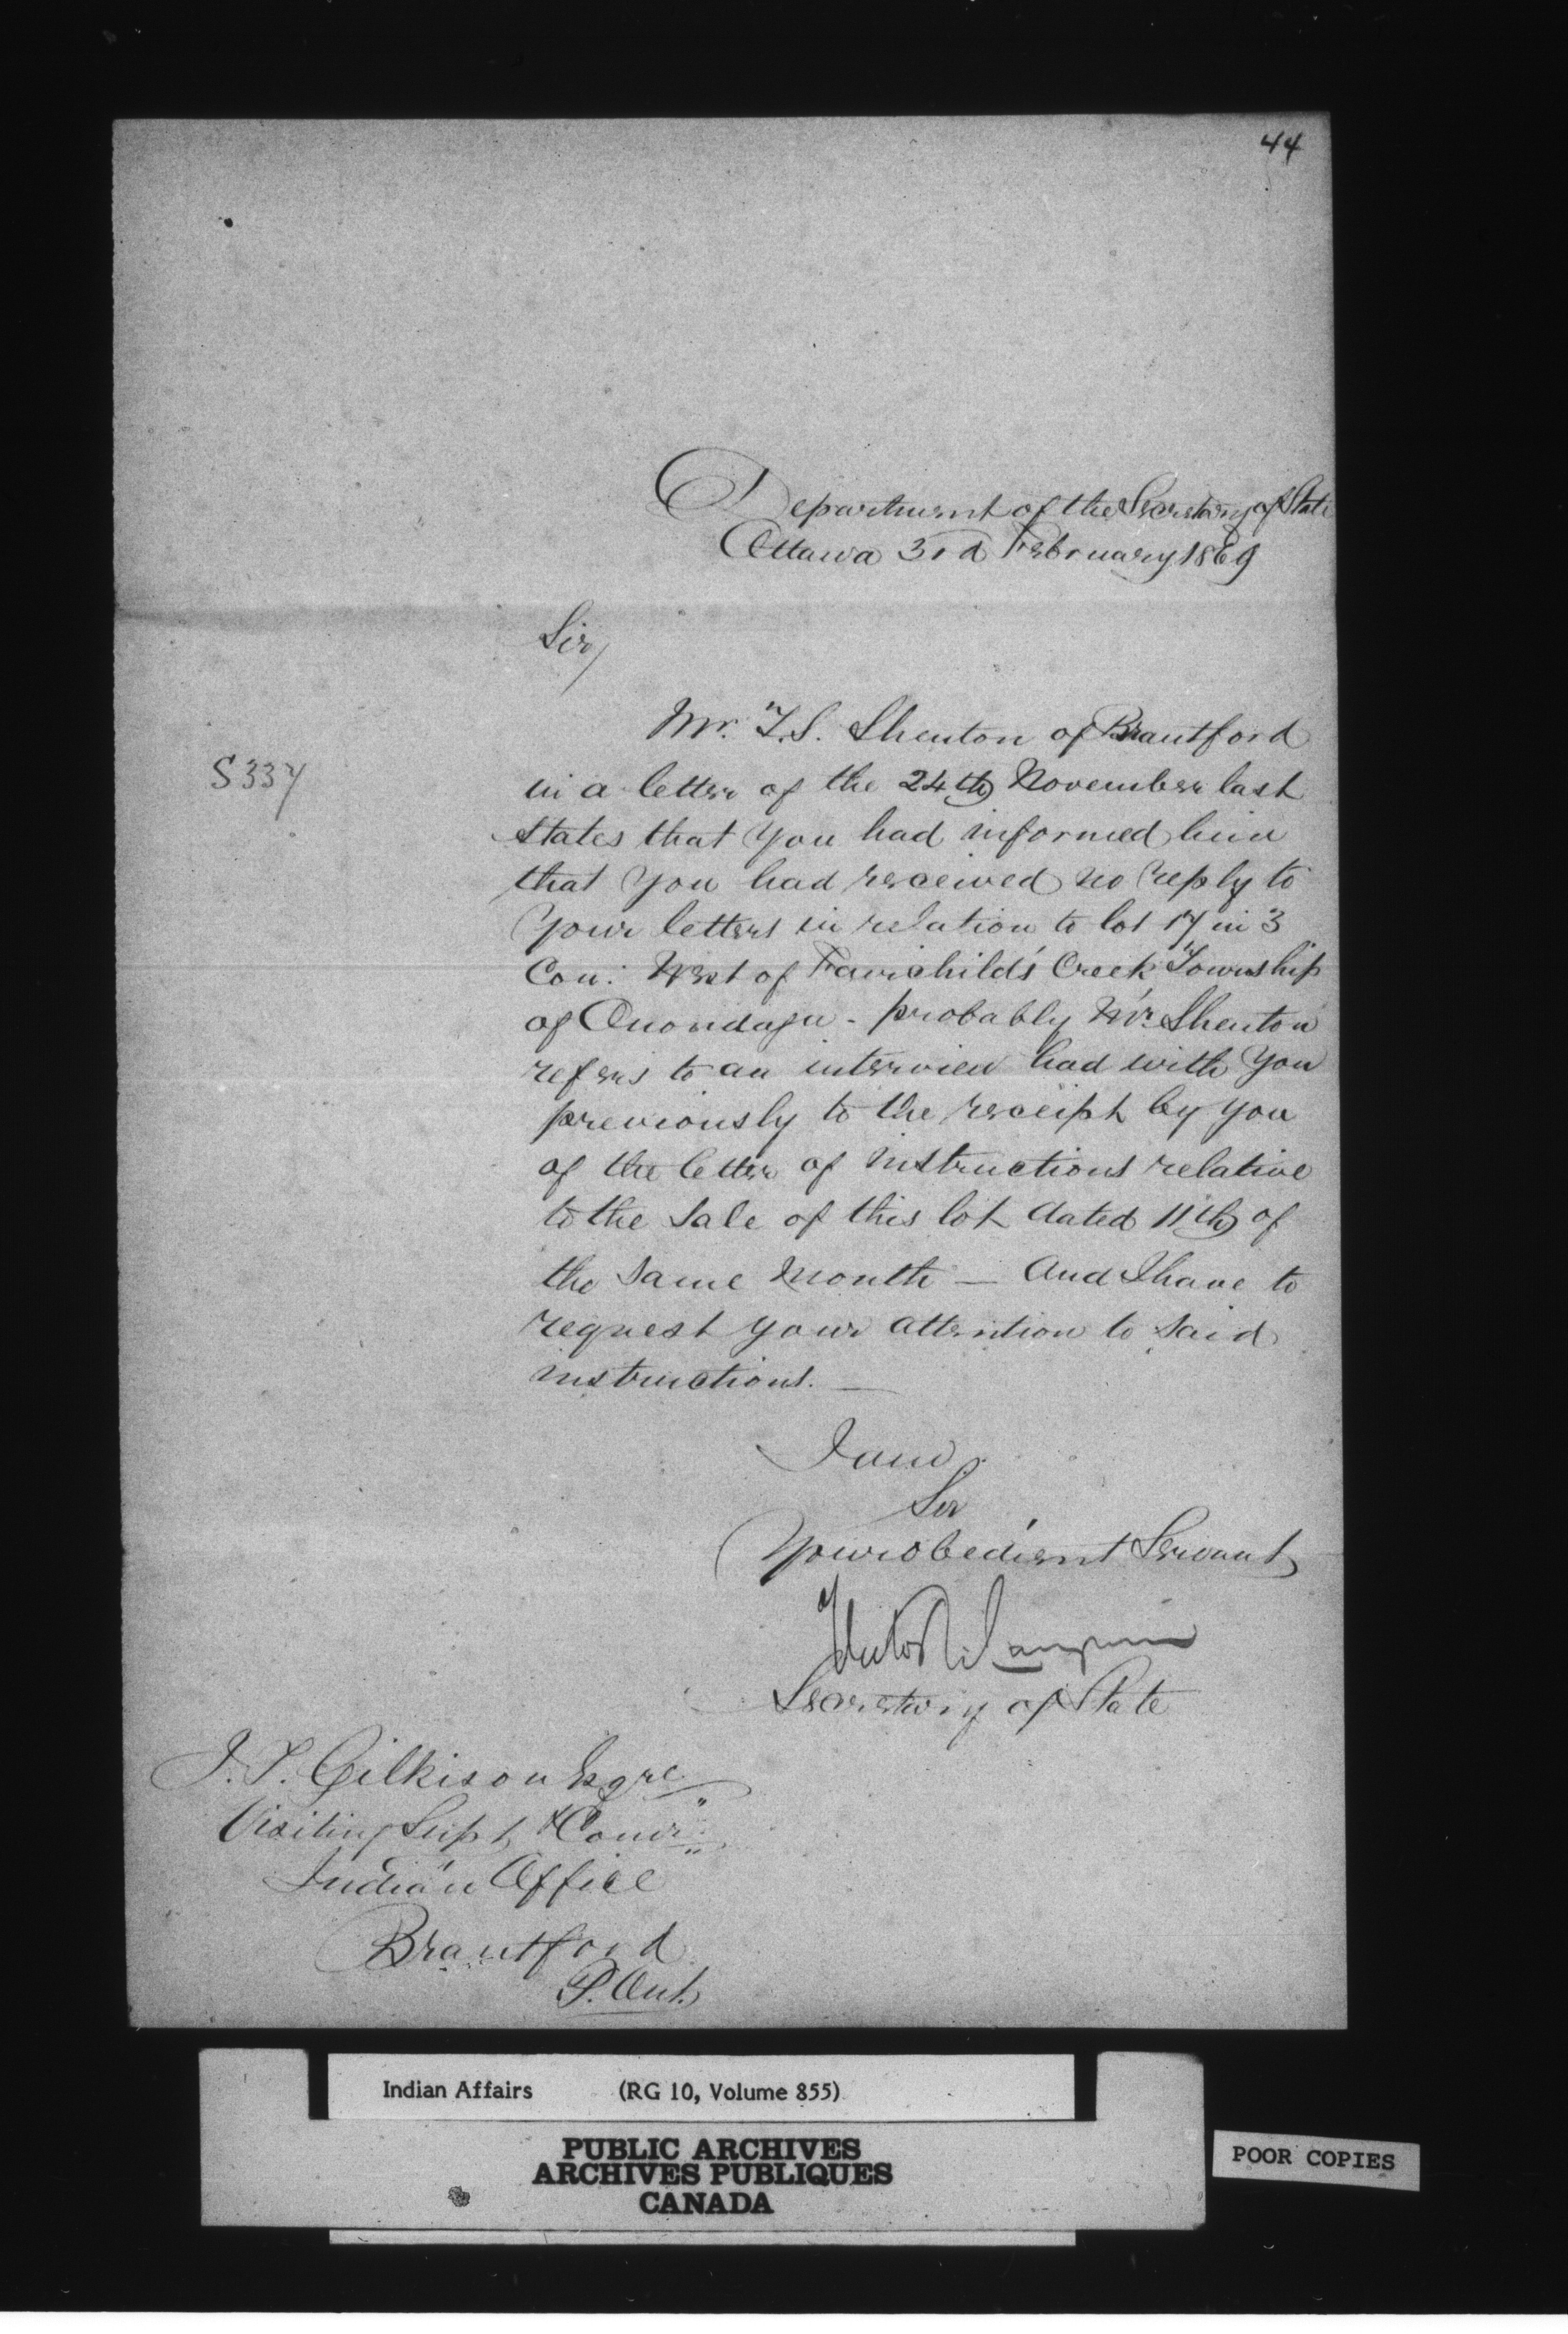 44
Department of the Secretary of State
Ottawa 3rd February 1869
Sir,
S337
Mr. T.S. Shenton of Brantford
in a letter of the 24th November last
states that you had informed him
that you had received no reply to
your letters in relation to lot 17 in 3
Con: West of Fairchild's Creek Township
of Onondaga - probably Mr. Shenton
refers to an interview had with you
previously to the receipt by you
of the letter of instructions relative
to the sale of this lot dated 11th of
the same month — And I have to
request your attention to said
instructions. —
I am
Sir
Your obedient Servant
Hector L. Langevin
Secretary of State
J.T. Gilkison Esqre
Visiting Supt & Comr
Indian Office
Brantford
P. Ont.
Indian Affairs (RG 10, Volume 855)
PUBLIC ARCHIVES
ARCHIVES PUBLIQUES
CANADA
POOR COPIES